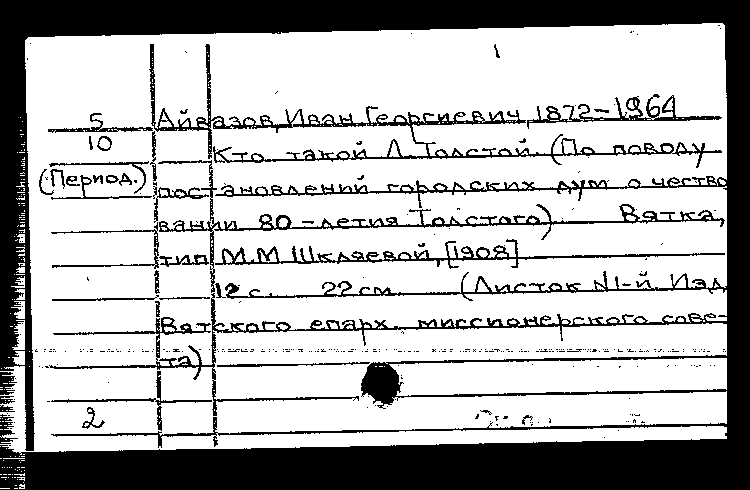 5 Айвазов, Иван Георгиевич, 1872-1964
10 Кто такой Л. Толстой. (По поводу
(Период.) постановлений городских дум о чество
вании 80-летия Толстого) Вятка,
тип М.М Шкляевой, [1908]
12 с. 22 см. (Листок №1-й. Изд
Вятского епарх. миссионерского сове-
та)
2